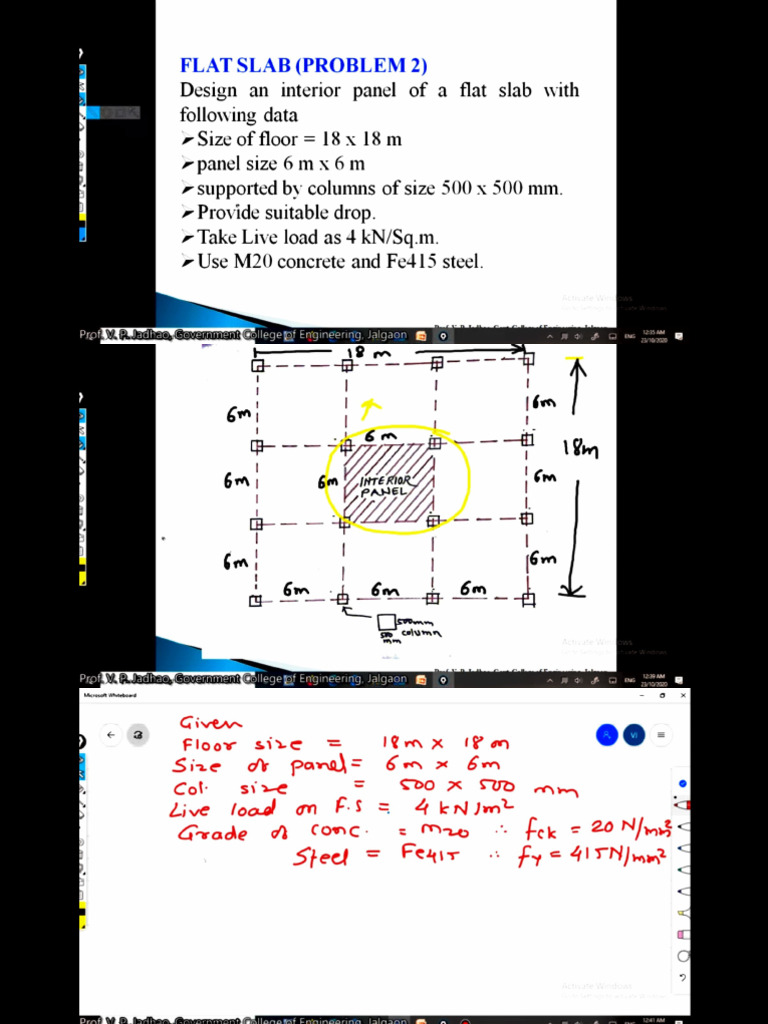 FLAT SLAB (PROBLEM 2)
Design an interior panel of a flat slab with
following data
➤Size of floor = 18 x 18 m
➤panel size 6 m x 6 m
➤supported by columns of size 500 x 500 mm.
➤Provide suitable drop.
➤Take Live load as 4 kN/Sq.m.
➤Use M20 concrete and Fe415 steel.
Activate Windows
Prof. V. P. Jadhao, Government College of Engineering, Jalgaon
ENG
12:35 AM
23/10/2020
18 m
6m
6m
6 m
18m
6m
6m
INTERIOR
PANEL
6m
6m
6m
6m
6m
6m
500mm
500
mm
column
Activate Windows
Prof. V. P. Jadhao, Government College of Engineering, Jalgaon
ENG
12:39 AM
23/10/2020
Microsoft Whiteboard
VI
Given
Floor size = 18m x 18m
Size of panel= 6m x 6m
Col. size = 500 x 500 mm
Live load on F.S = 4 kN/m²
Grade of conc. = M20 ∴ fck = 20 N/mm²
Steel = Fe415 ∴ fy = 415N/mm²
Activate Windows
Prof. V. P. Jadhao, Government College of Engineering, Jalgaon
ENG
12:41 AM